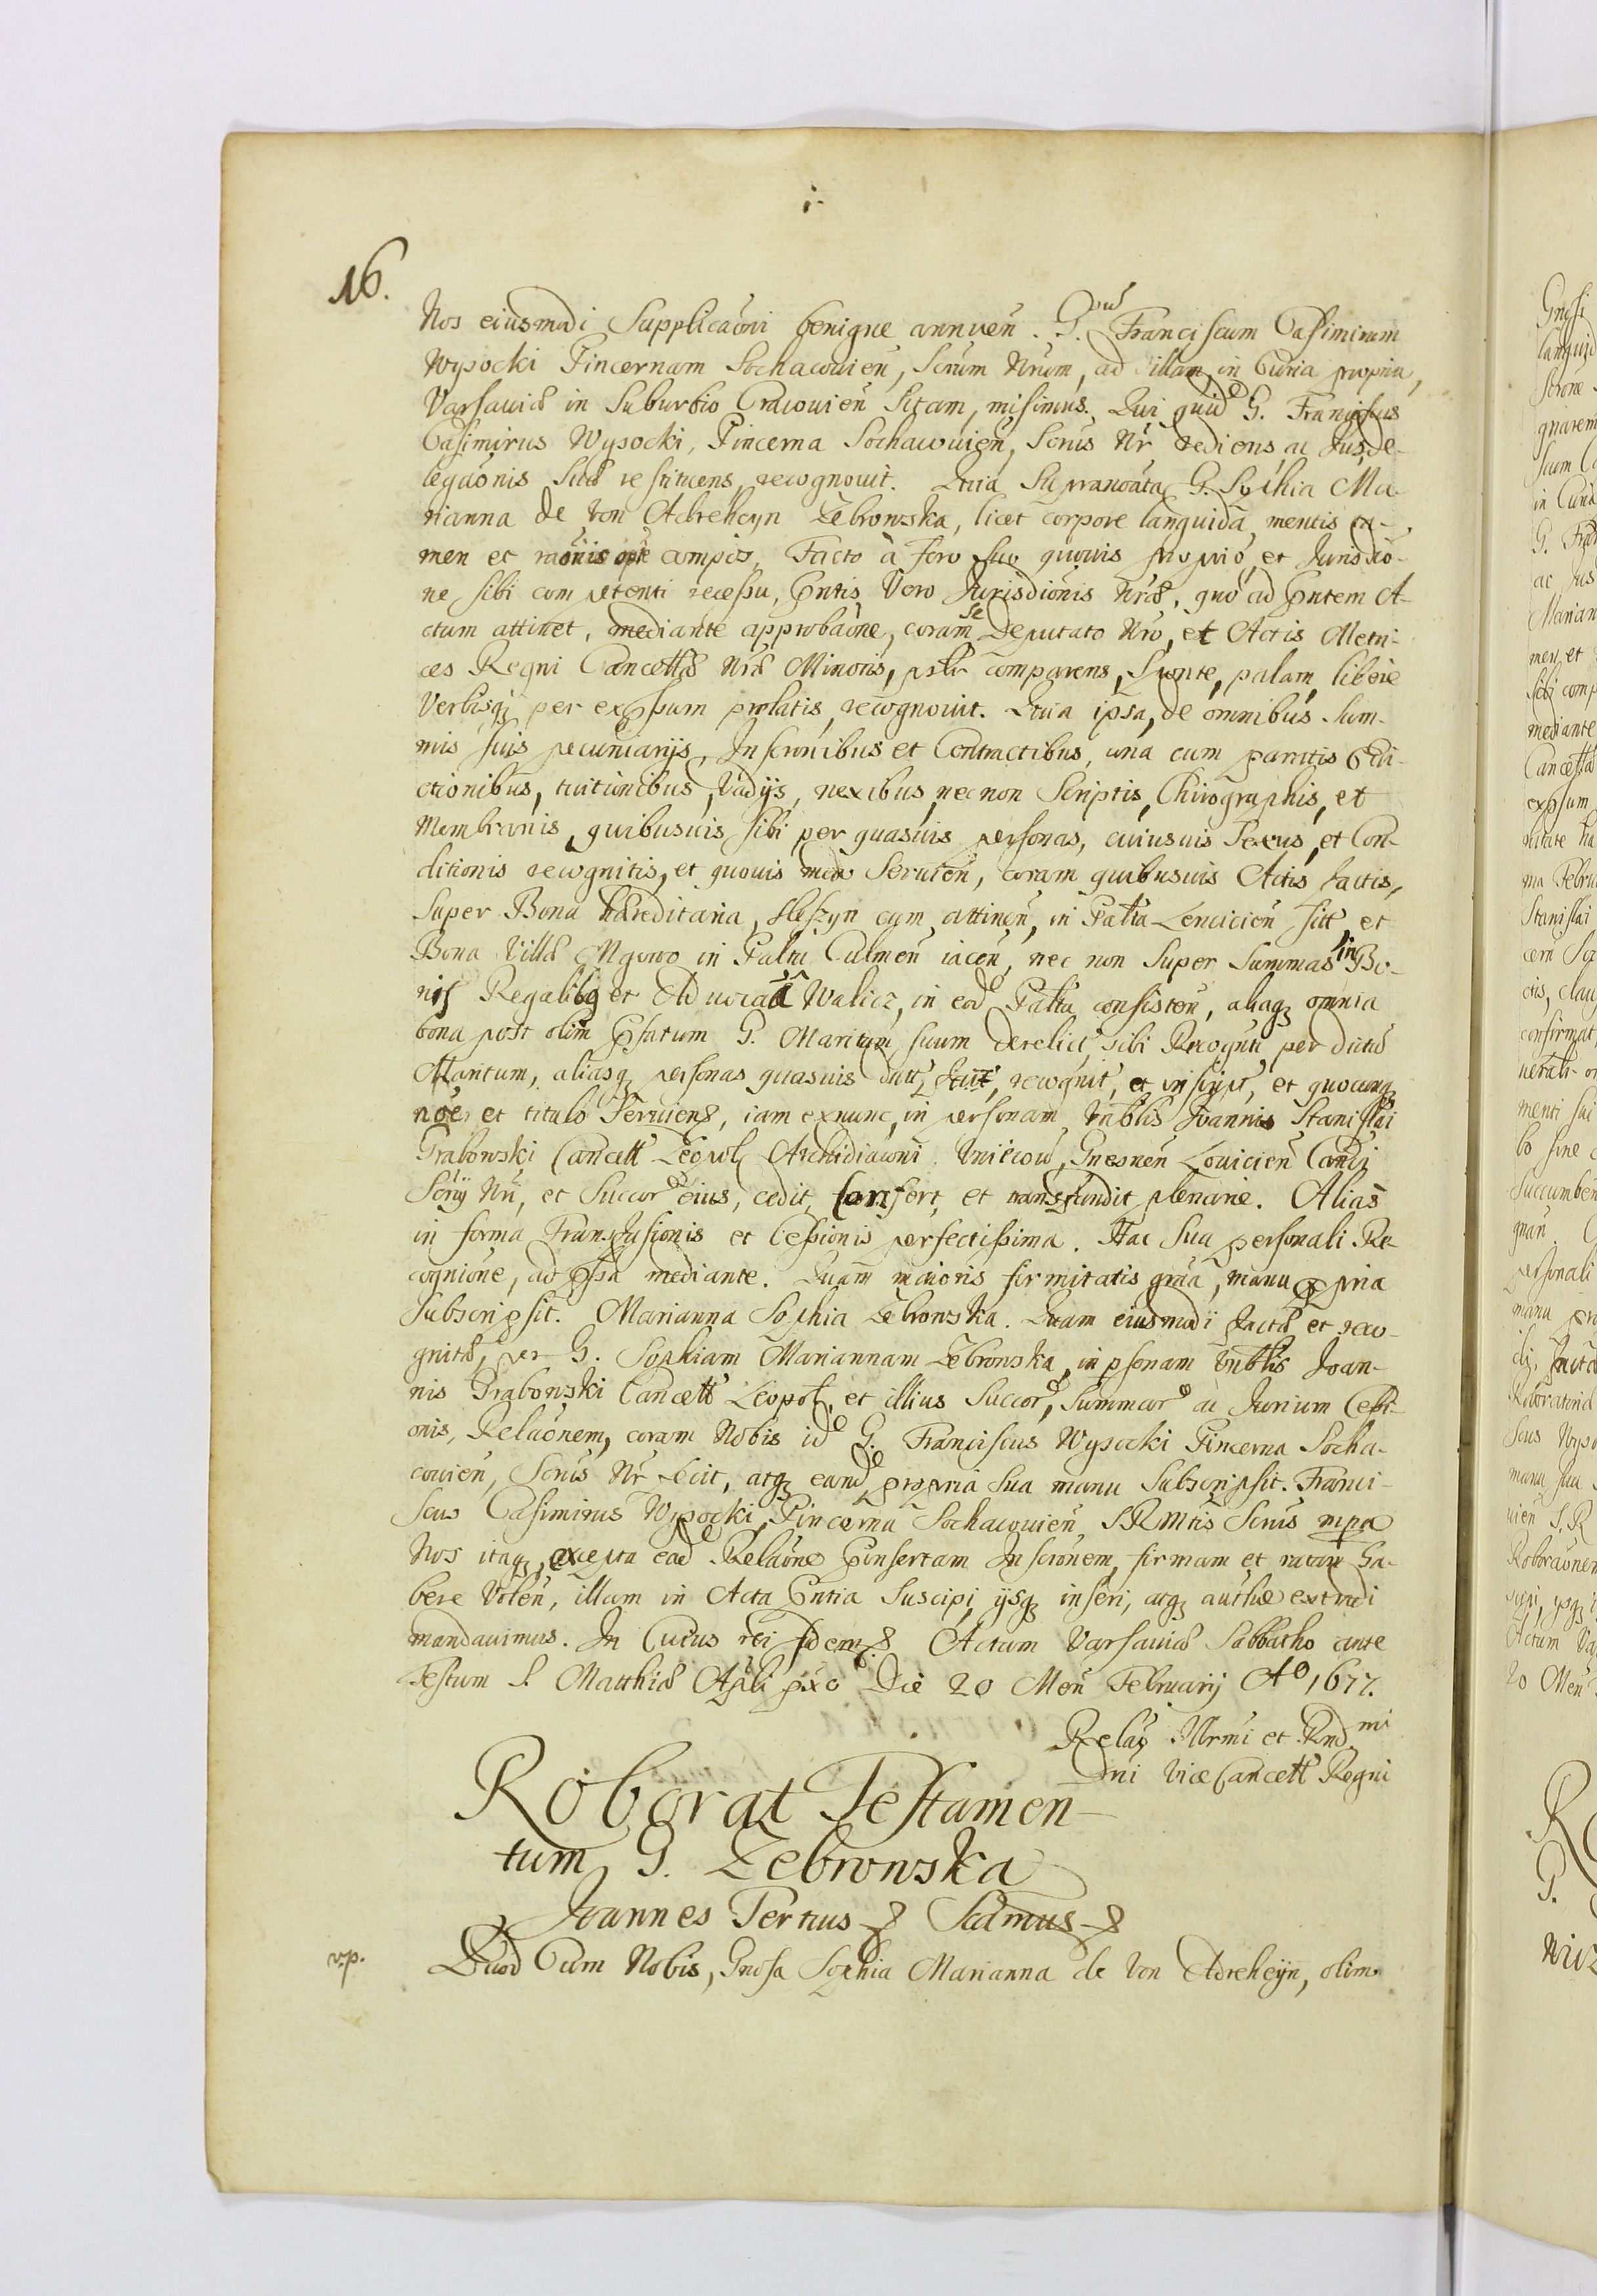 16.
Nos eiusmodi Supplicaoni benigne annuen. G. Franciscum Casimirum
Wysocki Pincernam Sochacouien, Scrum Nrum, ad illam, in Curia propria,
Varsauiæ in Suburbio Cracouien Sitam, misimus. Qui quid G. Franciscus
Casimirus Wysocki, Pincerna Sochacouien, Scrius Nr rediens, ac Jus de-
legaonis suæ restituens, recognouit. Quia Supranoata G. Sophia Ma-
rianna de Von Adreheyn Zebrowska, licet corpore languida, mentis ta-
men et raonis compos, Facto à foro suo quouis proprio, et Jurisdio-
ne sibi competenti recessu, Pntis Vero Jurisdionis Nræ, quo ad Pntem A-
ctum attinet, mediante approbaone, coram se Deputato Nro, et Actis Metri-
ces Regni Cancellæ Nræ Minoris, pslr comparens, Sponte, palam, libere
Verbisq per expssum prolatis, recognouit. Quia ipsa, de omnibus Sum-
mis suis pecuniarijs, Inscrionibus et Contractibus, una cum paratis Eui-
ctionibus, tuitionibus, Vadijs, nexibus, necnon Scriptis, Chirographis, et
Membranis, quibusuis sibi per quasuis personas, cuiusuis Sexus, et Con-
ditionis recognitis, et quouis modo Seruien, coram quibusuis Actis factis,
Super Bona hæreditaria, Sleszyn cum attinen, in Paltu Lencicien sitt, et
Bona Villæ Mgowo in Paltu Culmen iacen, nec non Super Summas in Bo-
nis Regalibq et Aduocaa Walicz, in eod Paltu consisten, aliaq omnia
bona post olim Psatum G. Maritum suum derelict, sibi Recognit, per dictu
Maritum, aliasq personas quasuis datt, recognit, et inscript, et quocunq
noe, et titulo Seruiens, iam exnunc, in personam Vnblis Joannis Stanislai
Grabowski Cancell Leopol Archidiaconi Vnieiow, Gnesnen Louicien Canci
Scrij Nri, et Succor eius, cedit, Confert, et transfundit plenarie. Alias
in forma Transfusionis et Cessionis perfectissima. Hac Sua personali Re-
cognione, ad pssa mediante. Quam maioris firmitatis graa, manu ppria
Subscripsit. Marianna Sophia Zebrowska. Quam eiusmodi factæ et reco-
gnitæ, per G. Sophiam Mariannam Zebrowska, in psonam Vnblis Joan-
nis Grabowski Cancell Leopol, et illius Succor, Summar ac Jurium Cessi-
onis, Relaonem, coram Nobis id G. Franciscus Wysocki Pincerna Socha-
couien, Scrius Nr fecit, atq eand propria Sua manu Subscripsit. Franci-
scus Casimirus Wysocki, Pincerna Sochacouien, SRMtis Scrius mpa
Nos itaq, excepta ead Relaone Pinsertam Inscrionem, firmam et ratam ha-
bere Volen, illam in Acta Pntia Suscipi, ijsq inseri, atq authæ extradi
mandauimus. In Cuius rei fidem. Actum Varsauiæ Sabbatho ante
Festum S. Matthiæ Apli pxo Die 20 Men Februarij Ao 1677.
Relao Illrmi et Rnd mi
Dni Vice Cancell Regni
Roborat Testamen-
tum G. Zebrowska
Joannes Tertius Salmus
v.p. Quod Cum Nobis, Gnosa Sophia Marianna de Von Adreheyn, olim